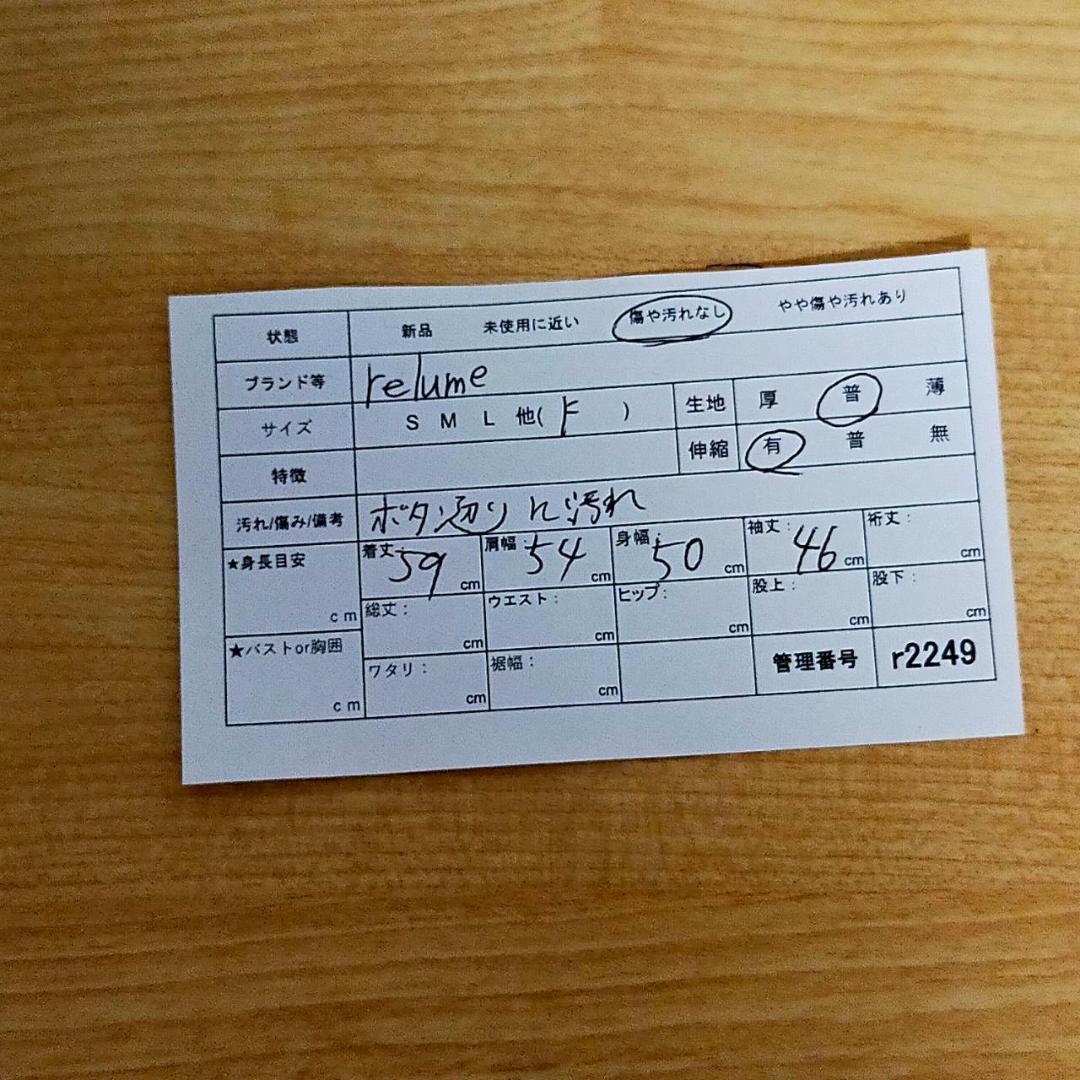 状態 新品 未使用に近い 傷や汚れなし やや傷や汚れあり
ブランド等 relume
サイズ S M L 他( F ) 生地 厚 普 薄
特徴 伸縮 有 普 無
汚れ/傷み/備考 ボタン辺りに汚れ
★身長目安 cm 着丈: 59 cm 肩幅: 54 cm 身幅: 50 cm 袖丈: 46 cm 裄丈: cm
総丈: cm ウエスト: cm ヒップ: cm 股上: cm 股下: cm
★バストor胸囲 cm ワタリ: cm 裾幅: cm 管理番号 r2249